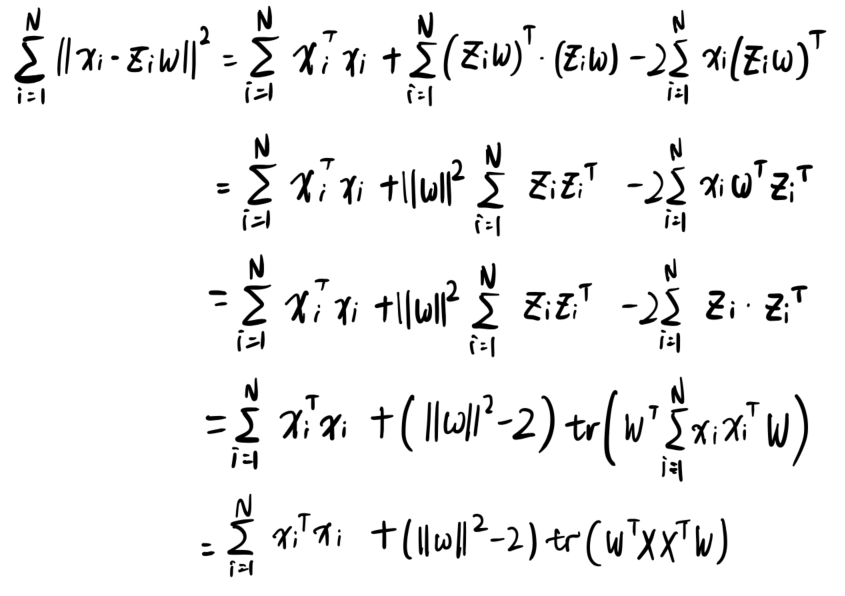 $\sum_{i=1}^{N} \|x_i - z_i w\|^2 = \sum_{i=1}^{N} x_i^T x_i + \sum_{i=1}^{N} (z_i w)^T \cdot (z_i w) - 2\sum_{i=1}^{N} x_i (z_i w)^T$
$= \sum_{i=1}^{N} x_i^T x_i + \|w\|^2 \sum_{i=1}^{N} z_i z_i^T - 2\sum_{i=1}^{N} x_i w^T z_i^T$
$= \sum_{i=1}^{N} x_i^T x_i + \|w\|^2 \sum_{i=1}^{N} z_i z_i^T - 2\sum_{i=1}^{N} z_i \cdot z_i^T$
$= \sum_{i=1}^{N} x_i^T x_i + (\|w\|^2 - 2) tr(W^T \sum_{i=1}^{N} x_i x_i^T W)$
$= \sum_{i=1}^{N} x_i^T x_i + (\|w\|^2 - 2) tr(W^T X X^T W)$